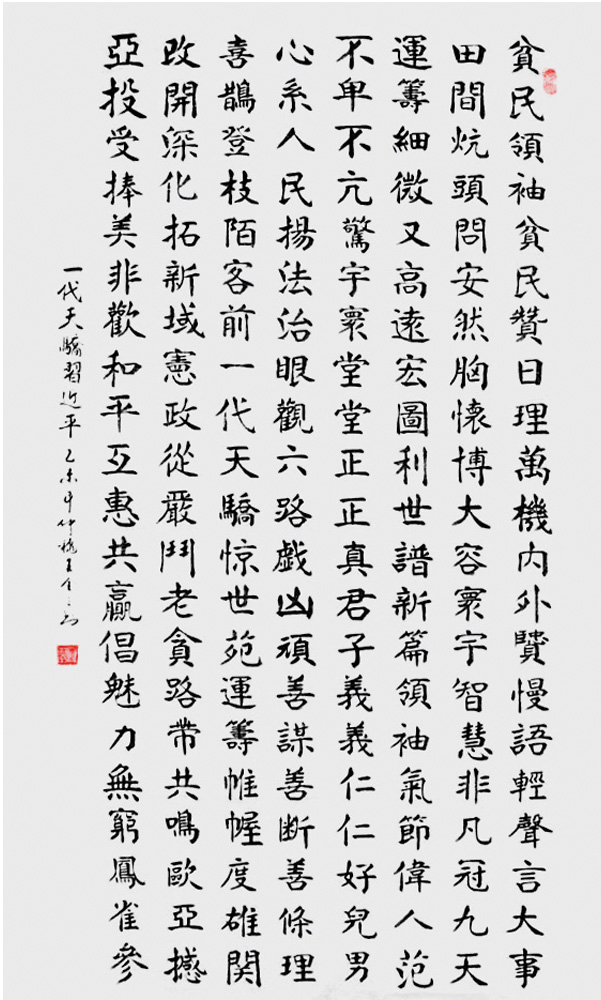 貧民領袖貧民贊日理萬機內外贒慢語輕聲言大事
田間炕頭問安然胸懷博大容寰宇智慧非凡冠九天
運籌細微又高遠宏圖利世譜新篇領袖氣節偉人范
不卑不亢驚宇寰堂堂正正真君子義義仁仁好兒男
心系人民揚法治眼觀六路戲凶頑善謀善断善條理
喜鵲登枝陌客前一代天驕惊世苑運籌帷幄度雄関
改開深化拓新域憲政從嚴鬥老貪路帶共鳴歐亞撼
亞投受捧美非歡和平互惠共贏倡魅力無窮鳳雀參
一代天驕習近平乙未年仲秋王